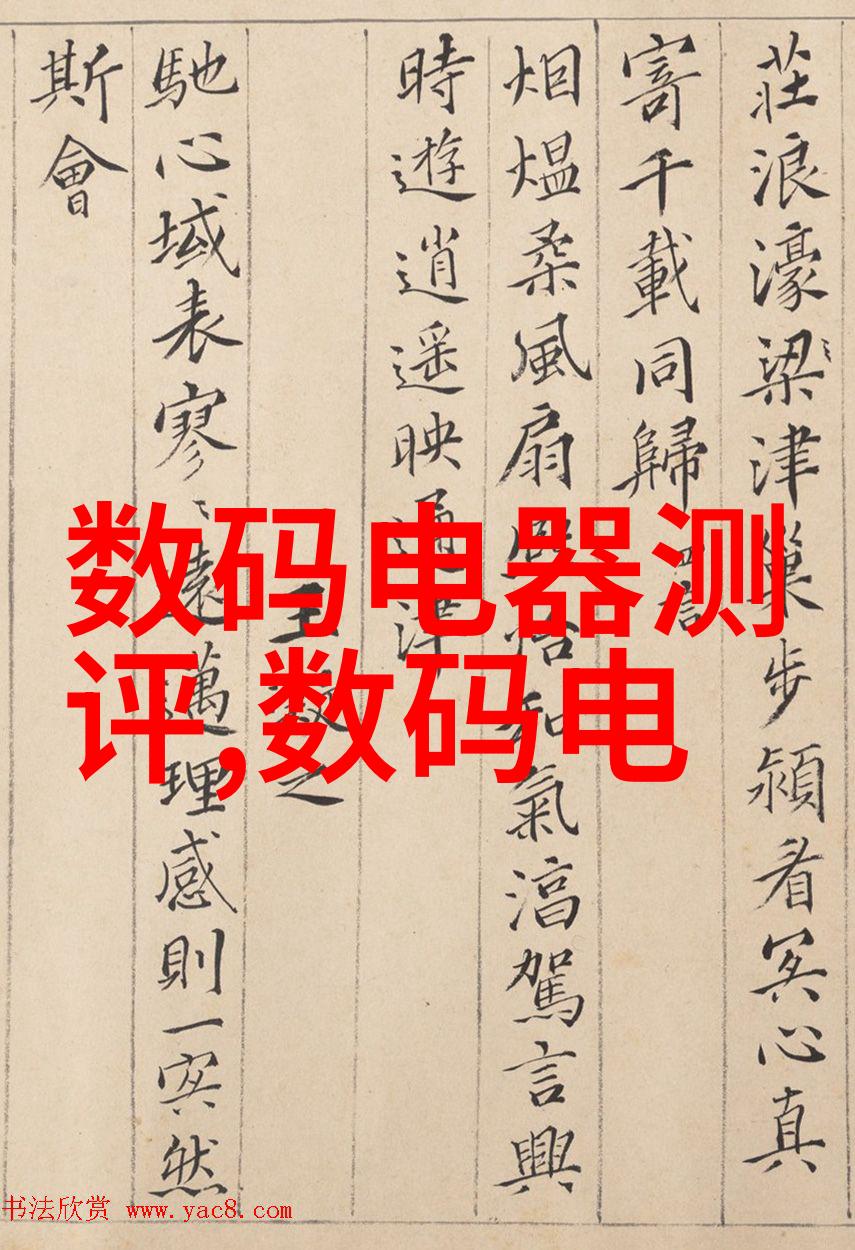 莊浪濠梁津巢步潁眉冥心真
寄千載同歸 四言
烟熅柔風扇熙怡和氣湻駕言興
時遊逍遥映通津
王之
馳心域表寥〻遠邁理感則一冥然
斯會
数码电器测
评,数码电
书法欣赏 www.yac8.com